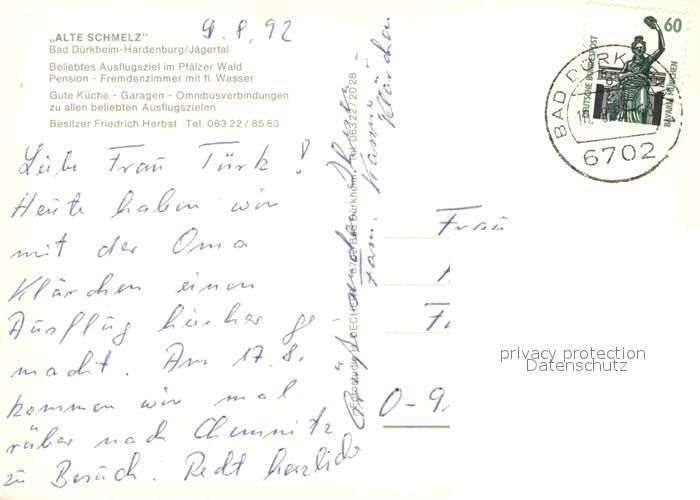 9.8.92
„ALTE SCHMELZ"
Bad Dürkheim-Hardenburg/Jägertal
Beliebtes Ausflugsziel im Pfälzer Wald
Pension - Fremdenzimmer mit fl. Wasser
Gute Küche - Garagen - Omnibusverbindungen
zu allen beliebten Ausflugszielen
Besitzer Friedrich Herbst Tel. 063 22 / 85 83
Liebe Frau Türk!
Heute haben wir
mit der Oma
Klärchen einen
Ausflug hierher ge-
macht. Am 17.8.
kommen wir mal
rüber nach Chemnitz
zu Besuch. Recht herzliche
Grüße senden Ihnen
Fam. Klärchen
6702 Bad Dürkheim, Tel. 063 22/20 28
60
DEUTSCHE BUNDESPOST
BAVARIA MÜNCHEN
BAD DÜRK
6702
Frau
0-9
privacy protection
Datenschutz